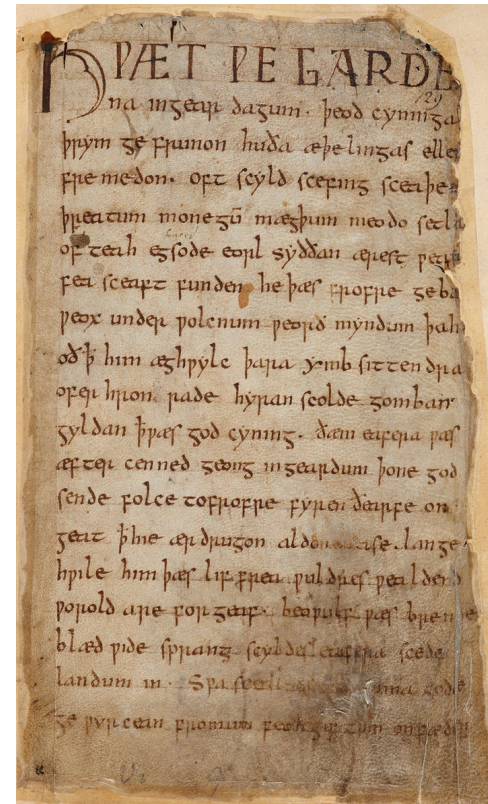 HǷÆT ǷE GARDE
129
na ingear dagum· þeod cyninga
þrym ge frunon huða æþelingas elle
fre medon· oft scyld scefing sceaþe
þreatum monegū mægþum meodo setla
of teah egsode eorl syððan ærest ƿear
fea sceaft funden he þæs frofre geba
ƿeox under ƿolcnum ƿeorð myndum þah
oð ꝥ him æghƿylc þara ymb sittendra
ofer hron rade hyran scolde gomban
gyldan ꝥ ƿæs god cyning· ðæm eafera ƿæs
æfter cenned geong ingeardum þone god
sende folce tofrofre fyren ðearfe on
geat ꝥ hie ær drugon aldor ase lange
hƿile him þæs lif frea ƿuldres ƿealdend
ƿorold are for geaf· beoƿulf ƿæs breme
blæd ƿide sprang scyldes eafera scede
landum in· Sƿa sceal guma gode
ge ƿyrcean fromum feoh giftum on fæder